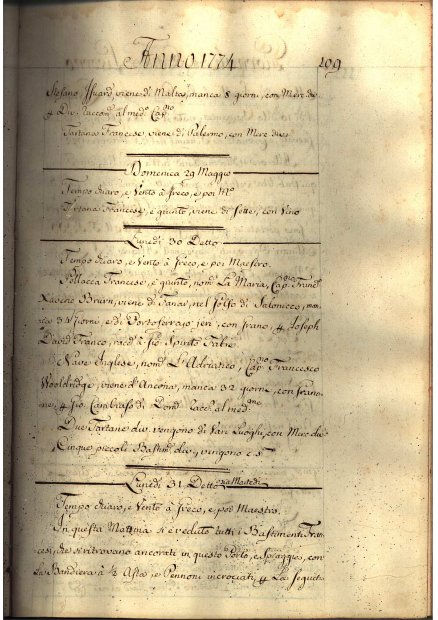 Anno 1774
109
Stefano Isuard, viene di Malta, manca 8 giorni, con Merc. div.
p Div. raccom. al med.º Cap.no
Tartana Francese viene di Palermo, con Merc. div.
Domenica 29 Maggio
Tempo chiaro, e Vento à Greco, e poi M.º
Tartana Francese, è giunto, viene di Sette, con Vino
Lunedi 30 Detto
Tempo chiaro, e Vento à Greco, e poi Maestro.
Pollacca Francese, è giunto, nom.ª La Maria, Cap.no Fran.co
Brun, viene di nel Golfo di Salonicco, man-
34 Giorni, e di Portoferrajo jeri, con Grano, p Joseph
David Franco, racc.º à Gio. Spirito
Nave Inglese, nom.ª L'Adriatico, Cap.no Francesco
Wooldridge, viene d'Ancona, manca 32 giorni, con Grano-
ne, p Gio. di Dom.º racc. al med.mo
Due Tartane div. vengono di Vari Luoghi, con Merc. div.
Cinque piccoli Bastim. div., vengono c. S.
Lunedi 31 Detto Martedi
Tempo chiaro, e Vento à Greco, e poi Maestro.
In questa Mattina si è veduto tutti i Bastimenti Fran-
cesi, che si ritrovano ancorati in questo Porto, e Spiaggia, con
La Bandiera à ½ Asta, e Pennoni incrociati, p La seguita